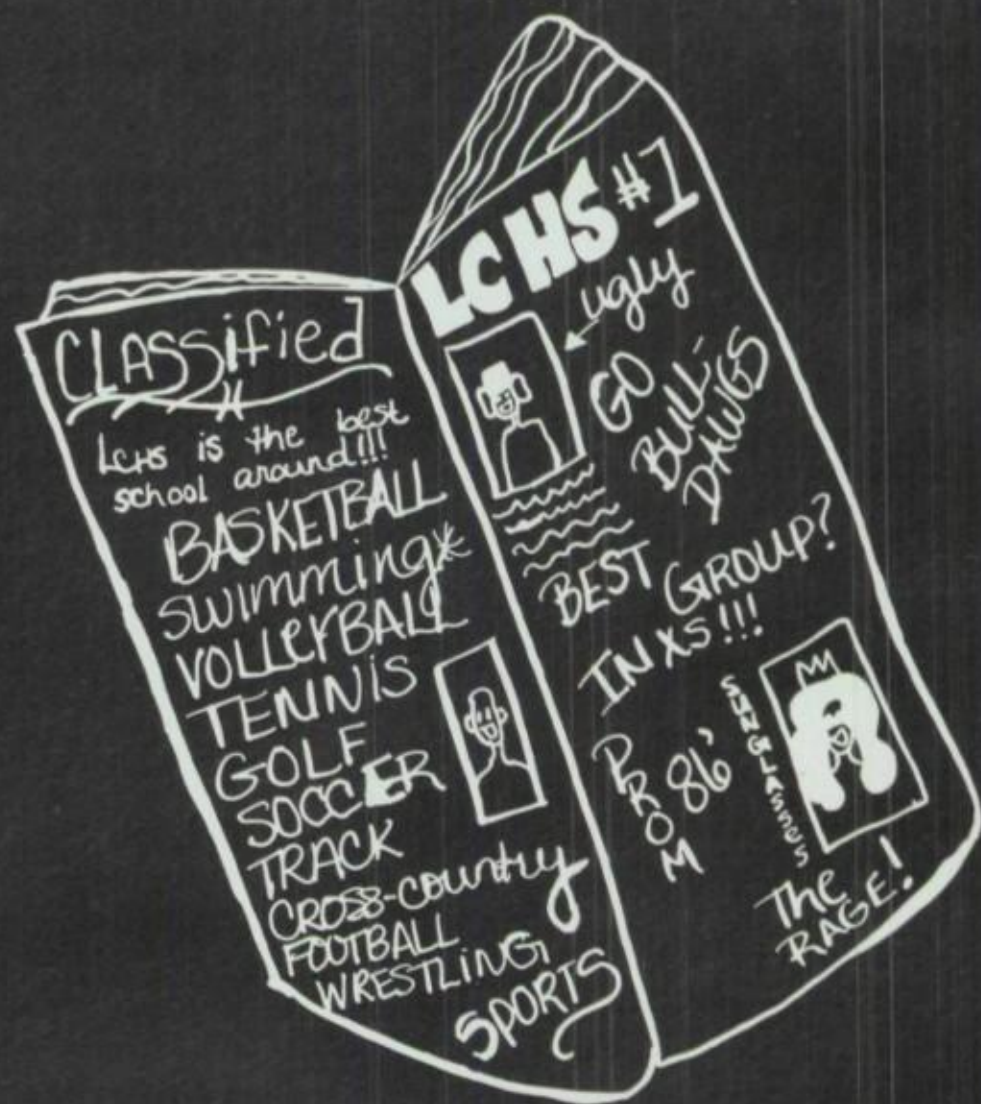 CLASSified
LCHS is the best
school around!!!
BASKETBALL
SWIMMING*
VOLLEYBALL
TENNIS
GOLF
SOCCER
TRACK
CROSS-COUNTRY
FOOTBALL
WRESTLING
SPORTS
LCHS #1
ugly
GO
BULL-
DAWGS
BEST GROUP?
INXS!!!
PROM 86'
SUNGLASSES
The
RAGE!